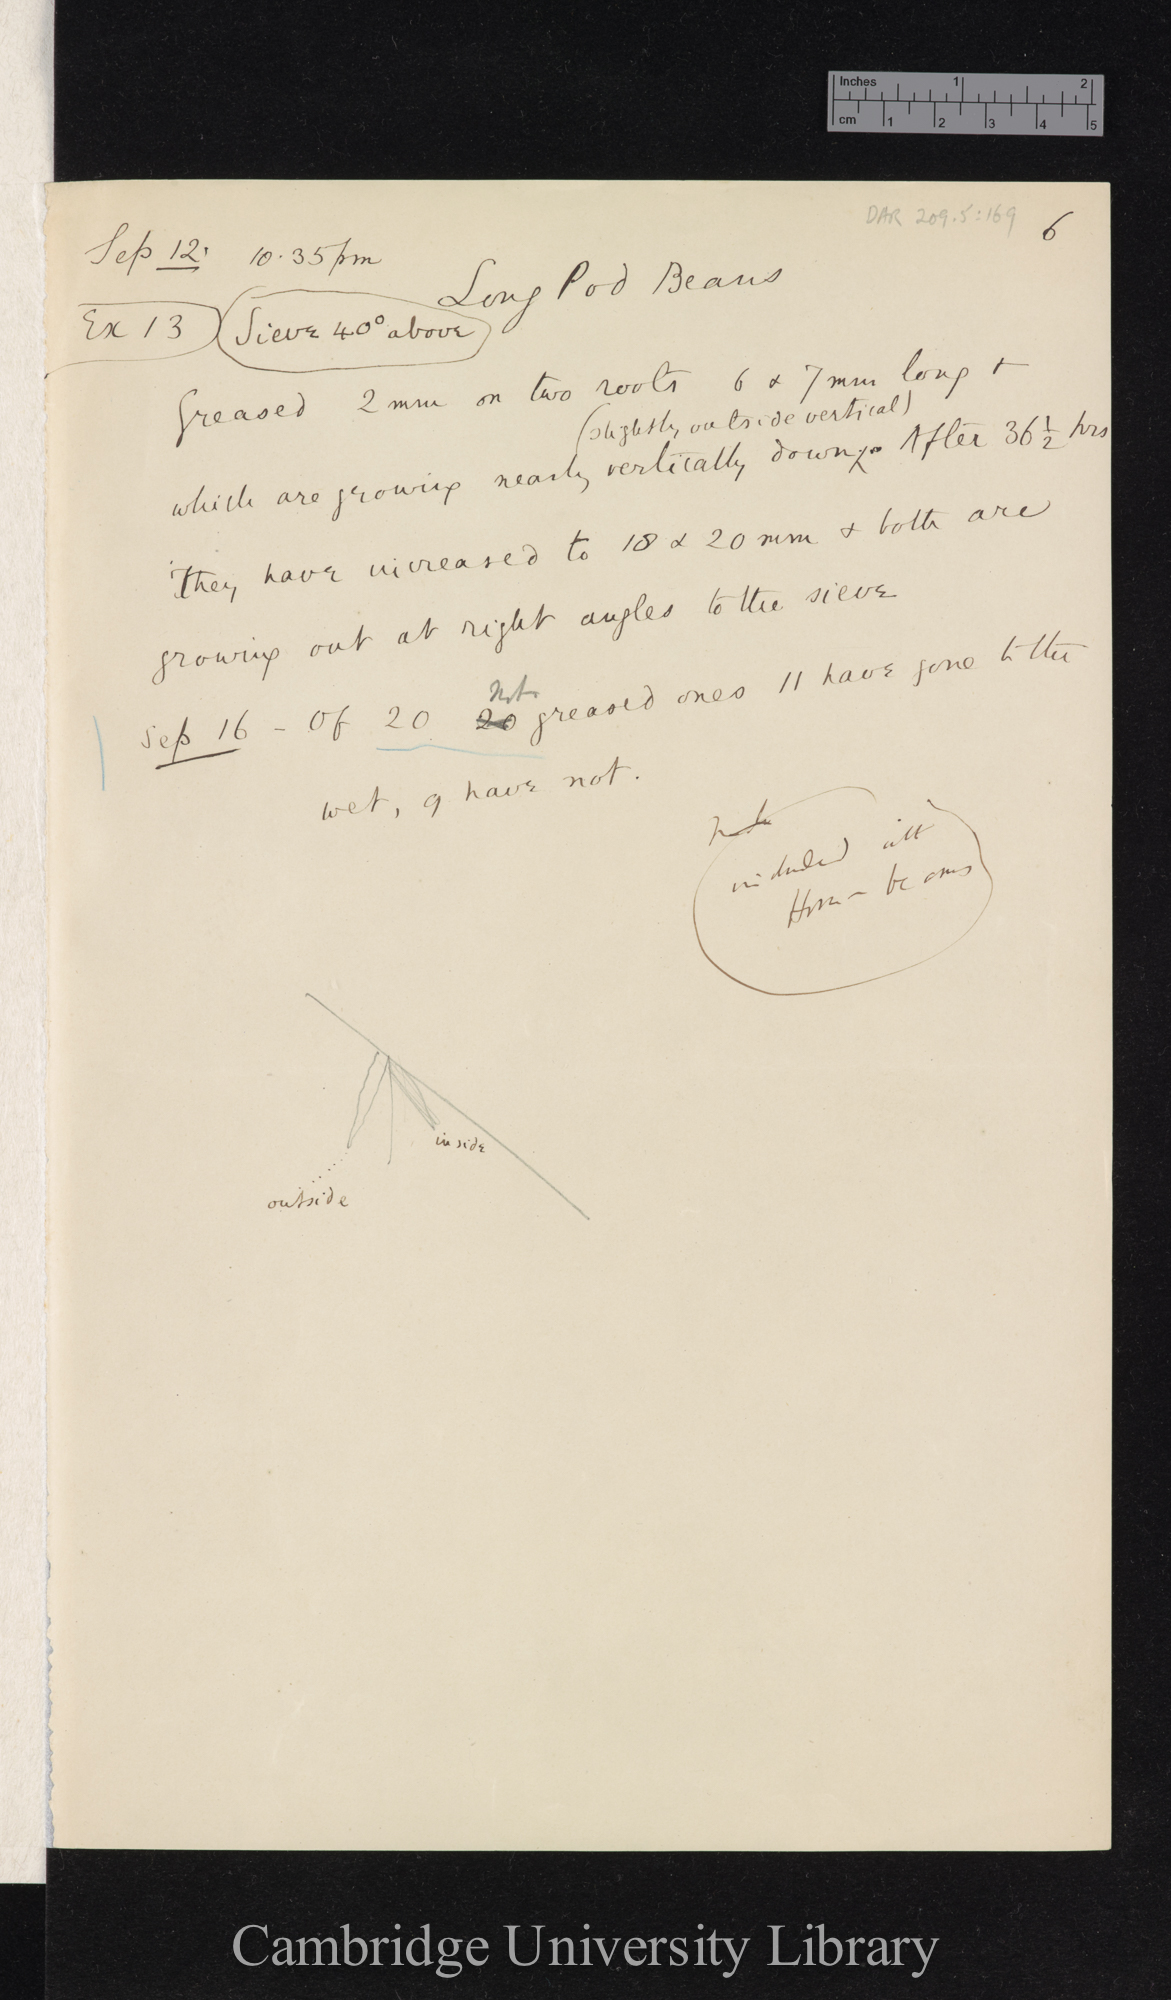 Inches 1 2
cm 1 2 3 4 5
DAR 209.5:169
6
Sep 12. 10.35 pm
Long Pod Beans
Ex 13 Sieve 40° above
Greased 2 mm on two roots 6 & 7 mm long &
(slightly outside vertical)
which are growing nearly vertically down. After 36 1/2 hrs
They have increased to 18 & 20 mm & both are
growing out at right angles to the sieve
Not
Sep 16 - Of 20 20 greased ones 11 have gone to the
wet, 9 have not.
included all
beans
inside
outside
Cambridge University Library